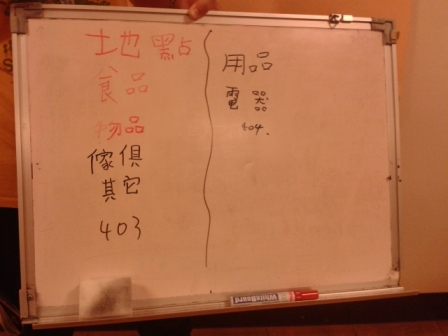 地點
食品
物品
傢俱
其它
403
用品
電器
404.
WhiteBoard